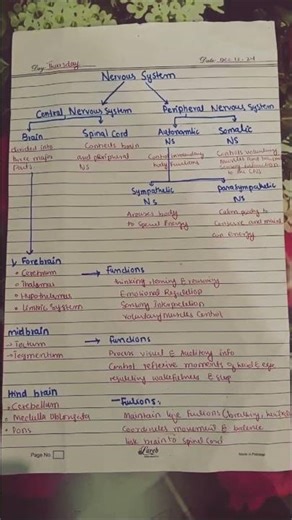 Day: Thursday Date: Dec 12-24
Nervous System
Central Nervous System Peripheral Nervous System
Brain Spinal Cord Autonomic NS Somatic NS
divided into three major Parts
Connects brain and peripheral NS
Control involuntary body functions
Controls voluntary to the CNS
Sympathetic NS Parasympathetic NS
Arouses body to Energy
Calm body to Conserve and energy
Forebrain
Cerebrum → Functions
Thalamus thinking, and memory
Hypothalamus Emotional Regulation
Limbic System Sensory Interpretation
Voluntary muscles Control
midbrain
Tectum → Functions
Tegmentum Process visual & auditory info
Control reflexive moments of head & eye
regulating wakefulness & sleep
Hind brain
Cerebellum
Medulla Oblongata Maintain life (breathing,
Pons Coordinates movement & balance
link brain to Spinal Cord
Page No.